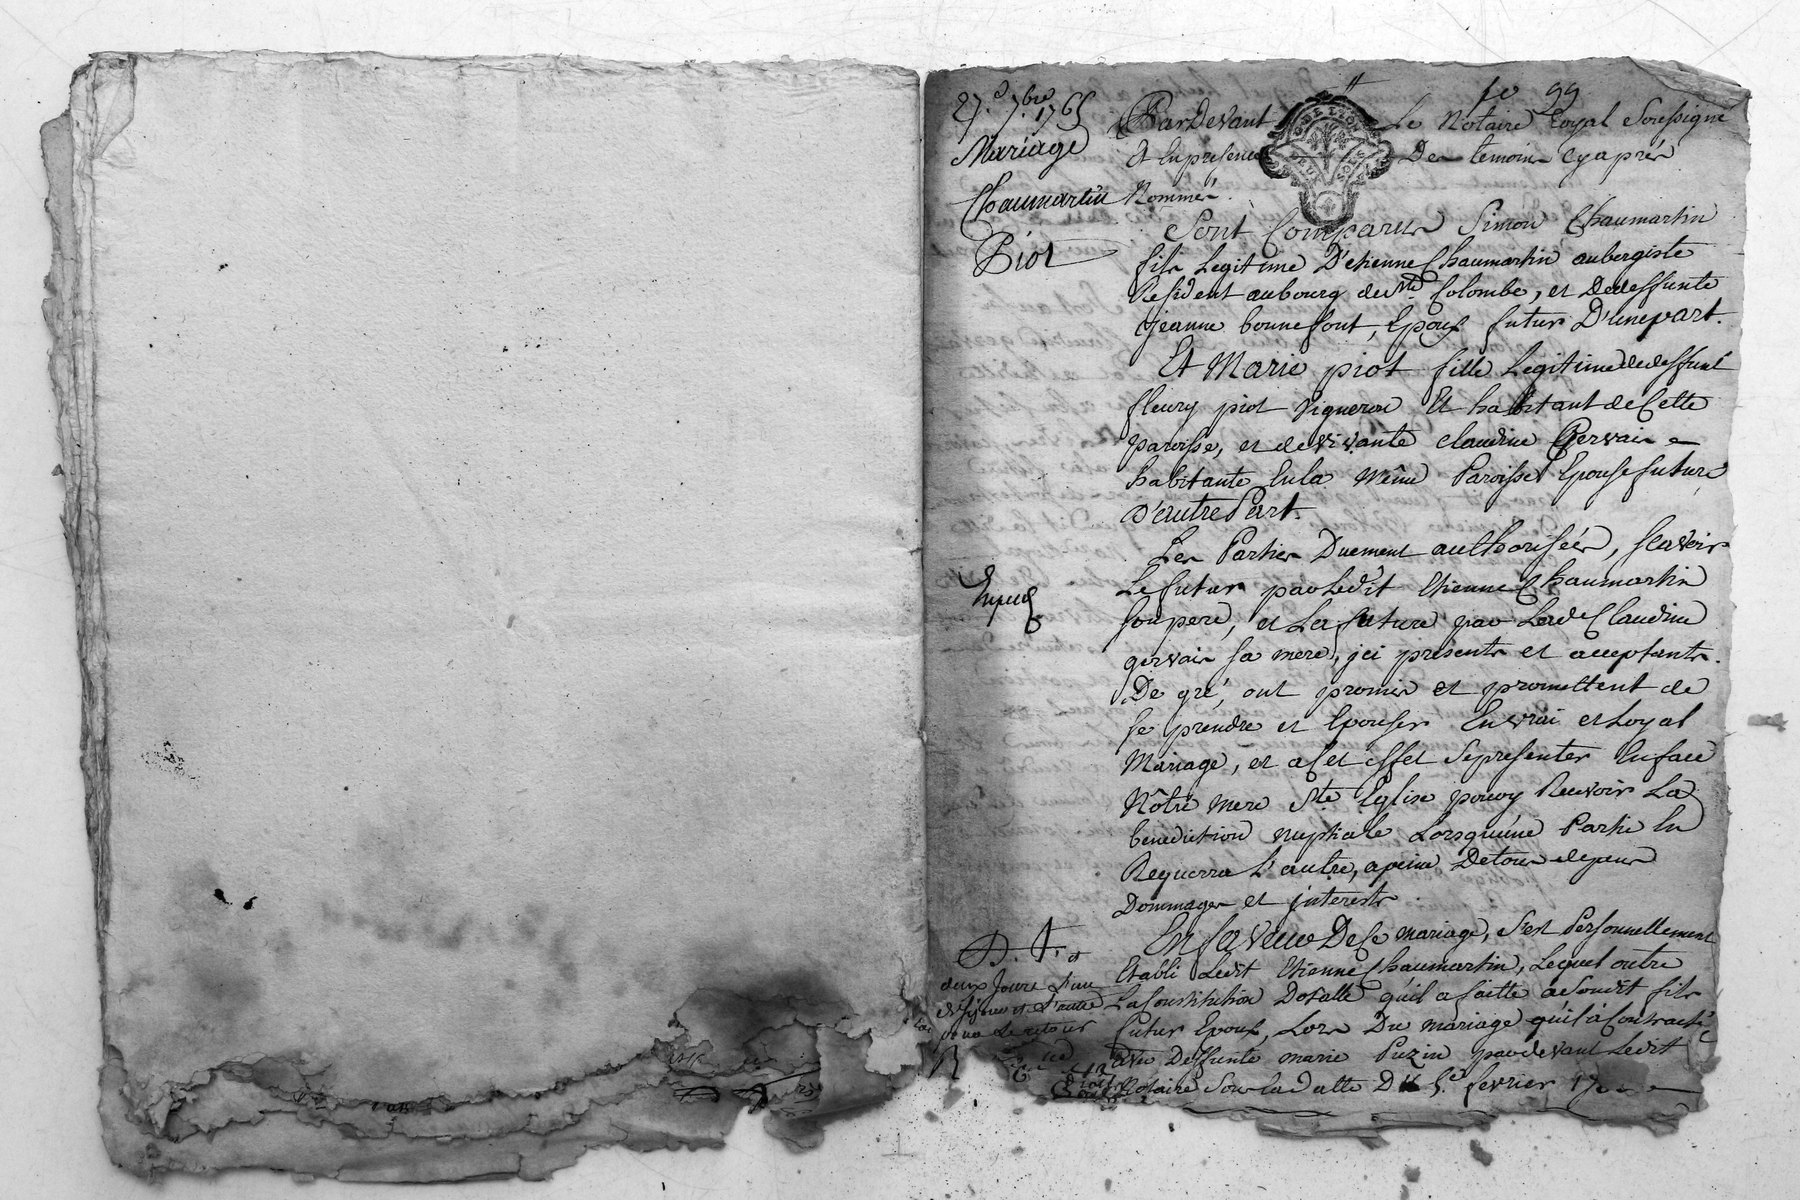 fo 99
27.e 7.bre 1765
Mariage
Chaumartin
Piot
Par Devant Le Notaire Royal Soussigné
Et En presence Des temoins Cy après
Nommés.
Sont Comparus Simon Chaumartin
fils Legitime D'etienne Chaumartin aubergiste
Resident au bourg de Ste Colombe, et De deffunte
jeanne bonnefont, Epoux futur D'une part.
Et Marie piot fille Legitime de deffunt
fleury piot vigneron Et habitant de Cette
paroisse, et de vivante claudine Gervais
habitante En la même Paroisse Epouse future
D'autre Part.
Les Parties Duement authorisées, scavoir
Le futur par Ledit Etienne Chaumartin
son pere, et La future par Lade Claudine
gervais sa mere, jci présents et acceptants.
De gré, ont promis et promettent de
se prendre et Epouser En vrai et Loyal
Mariage, et a Cet effet Se presenter En face
Nôtre mere Ste Eglise pour y Recevoir La
bénédiction nuptiale Lorsqu'une Partie En
Requerra L'autre, a peine De tous depens
Dommages et jnterests.
En faveur De Ce mariage, s'est Personnellement
Etabli Ledit Etienne Chaumartin, Lequel outre
La Constitution Dotalle qu'il a faitte a Son dit fils
futur Epoux, Lors Du mariage qu'il à Contracté
avec Deffunte marie Puzin par devant Ledit
Notaire Sous la datte Du 5.e fevrier
deux jours L'un
et L'autre